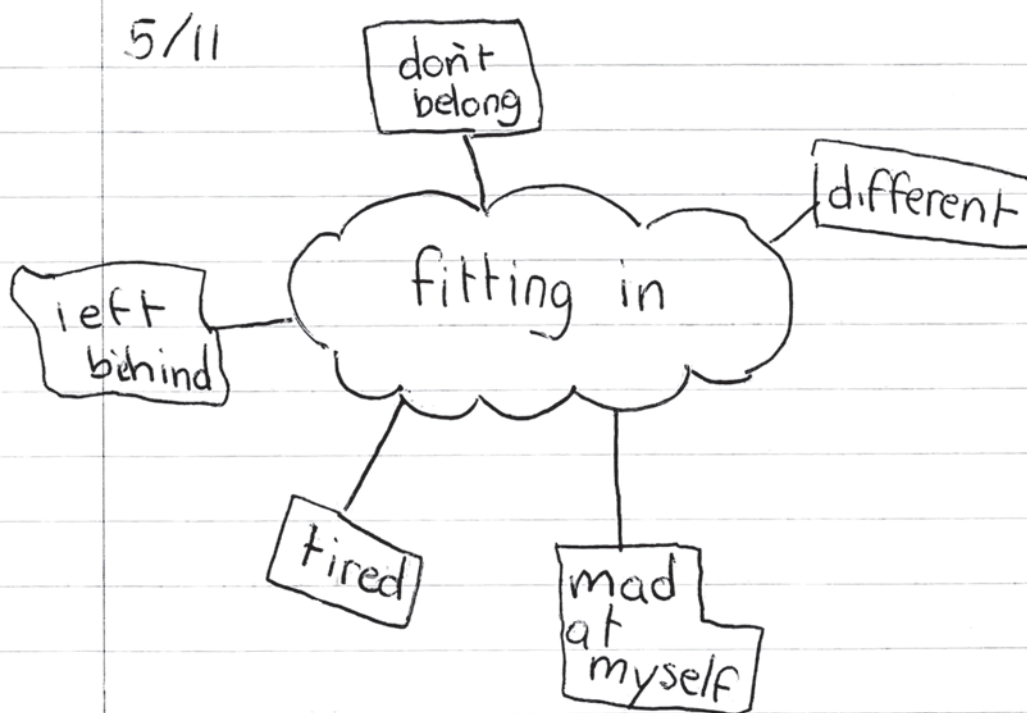 5/11
don't
belong
different
fitting in
left
behind
tired
mad
at
myself